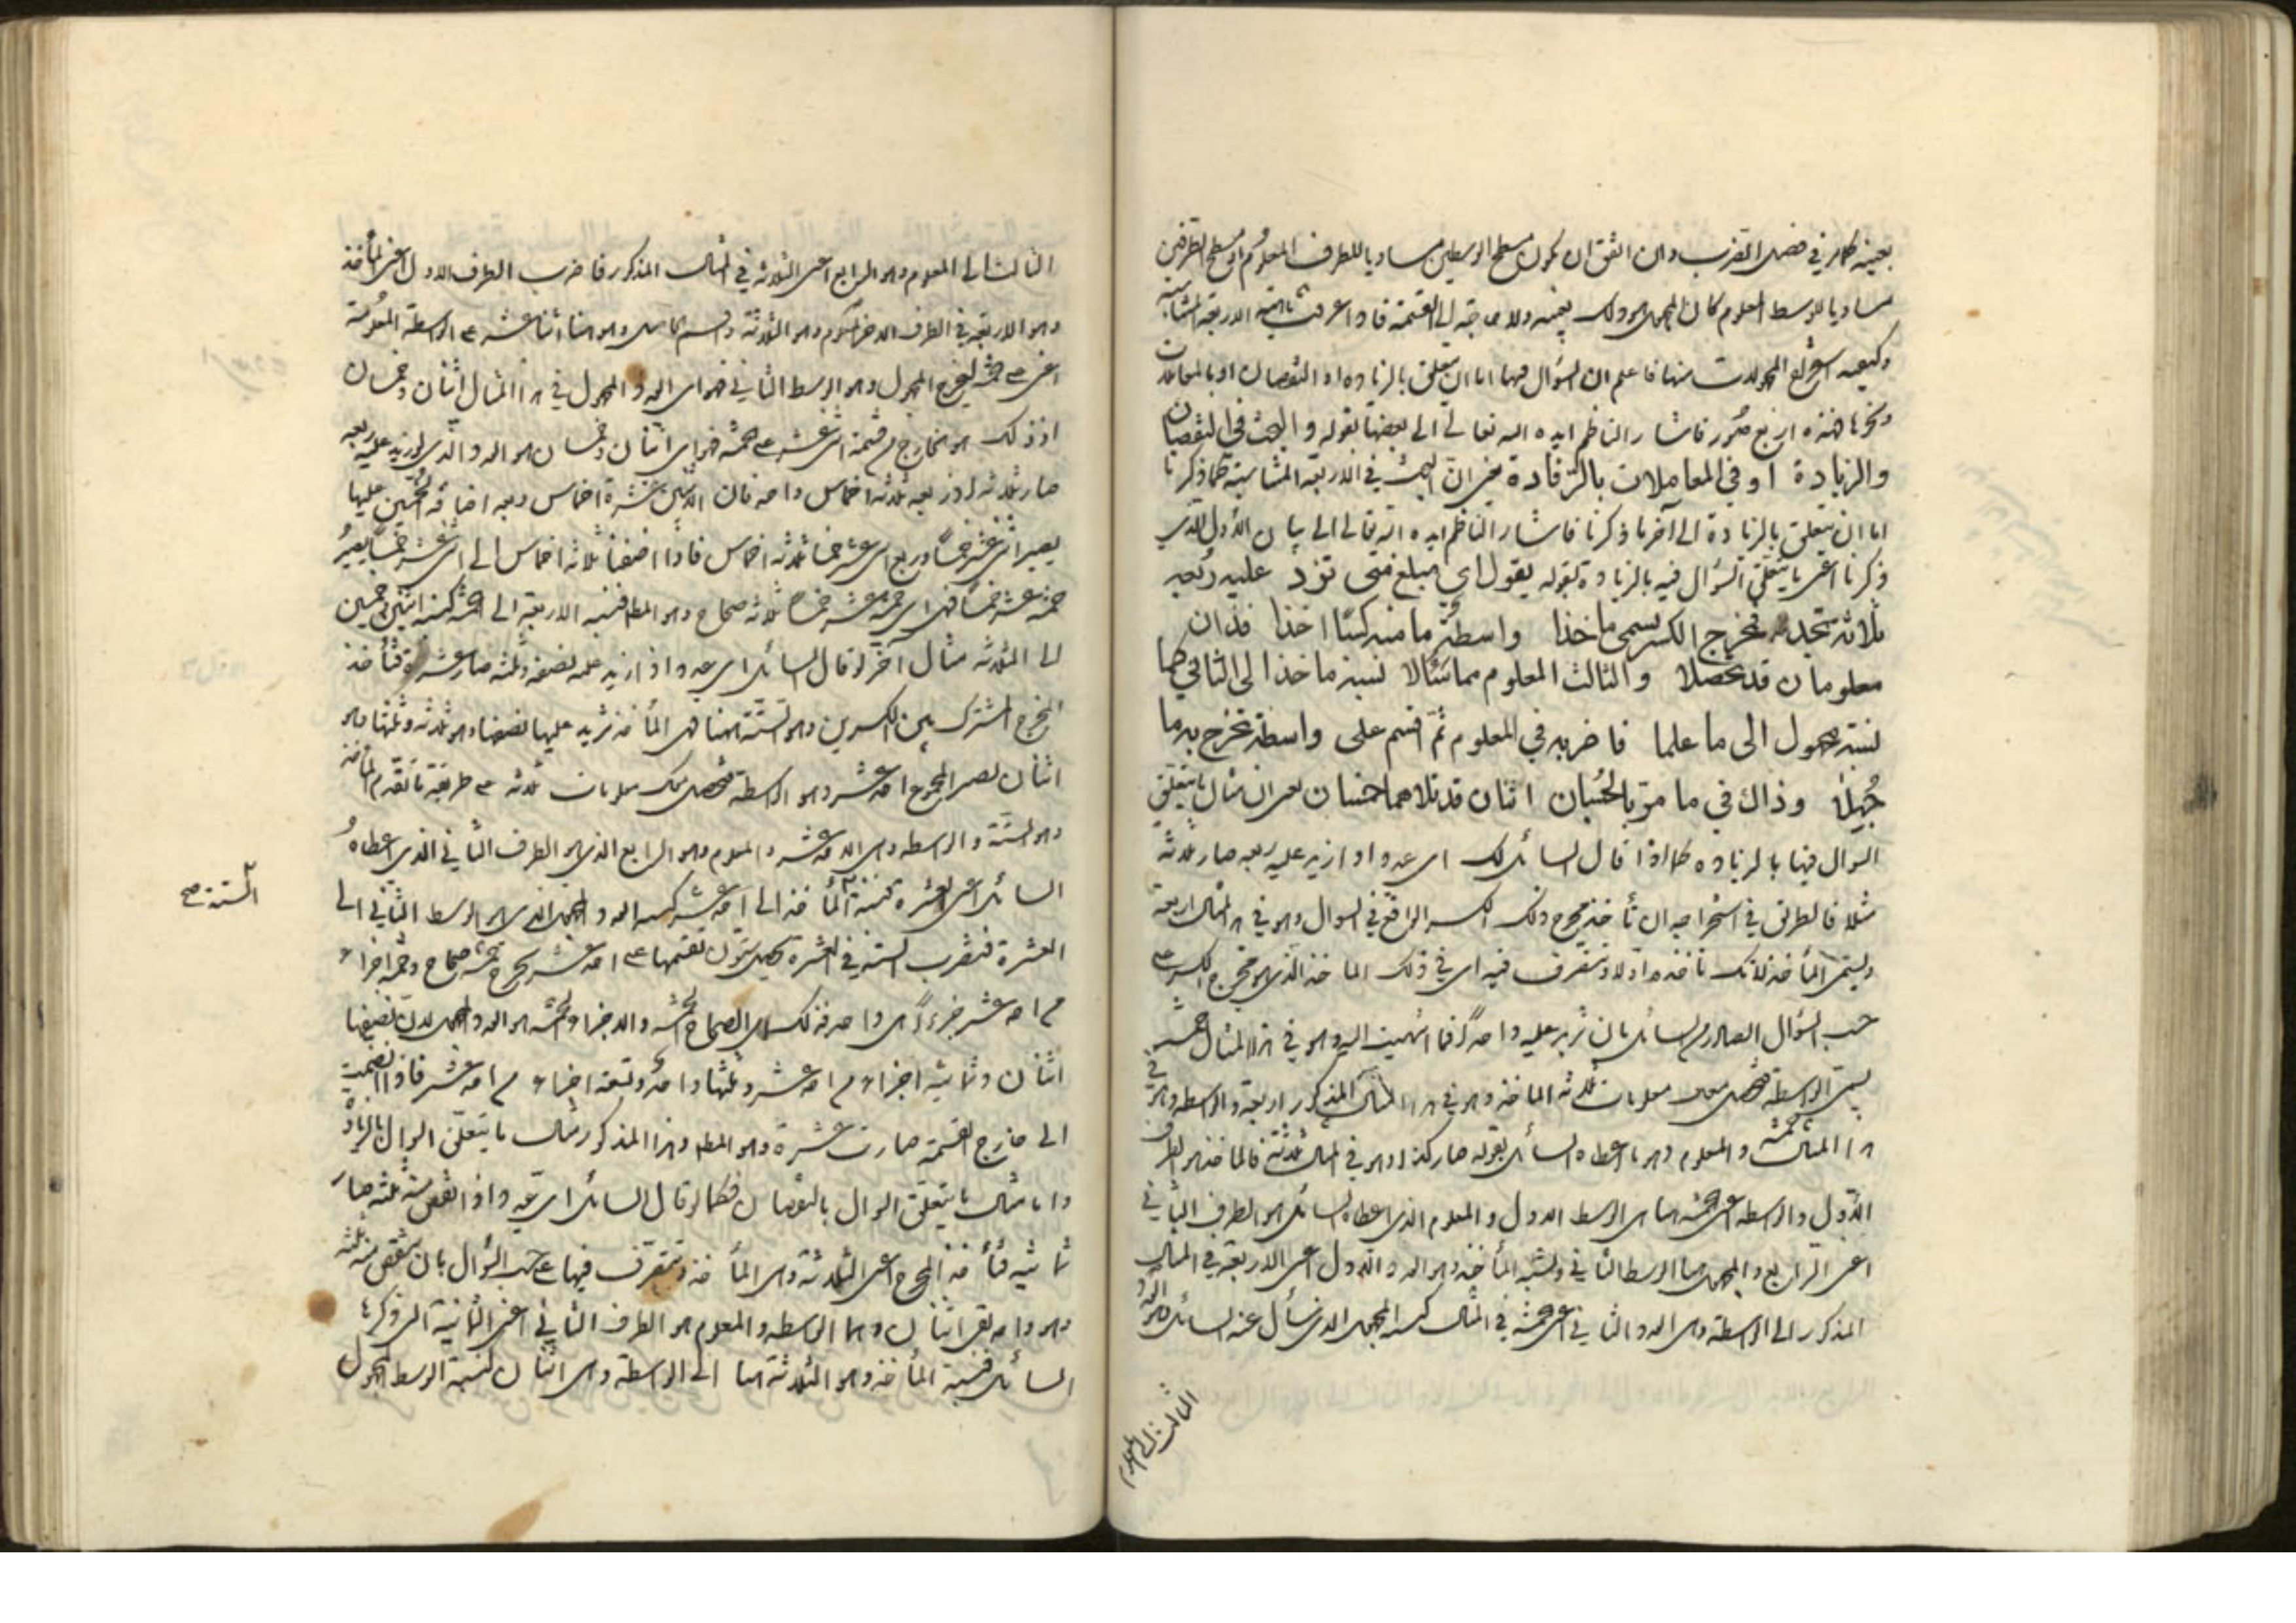 بعينه كما مر في فصل الضرب وان اتفق ان يكون مسطح الوسطين مساويا للطرف المعلوم او مسطح الطرفين
مساويا للوسط المعلوم كان المجهول هو ذلك بعينه ولا حاجة الى القسمة فاذا عرفت ماهية الاربعة المتناسبة
وكيفية استخراج المجهولات منها فاعلم ان السؤال فيها اما ان يتعلق بالزيادة او النقصان او بالمعاملات
ونحوها فهذه اربع صور فاشار الناظم ايده الله تعالى الى بعضها بقوله والبحث في النقصان
والزيادة او في المعاملات بالرفادة يعني ان البحث في الاربعة المتناسبة كما ذكرنا
اما ان يتعلق بالزيادة الى آخر ما ذكرنا فاشار الناظم ايده الله تعالى الى بيان الاول الذي
ذكرنا اعني ما يتعلق السؤال فيه بالزيادة بقوله يقول اي مبلغ متى تزد عليه ربعه
ثلاثة تجد فمخرج الكسر يسمى ماخذا واسطة ما منه كسبا اخذا فذان
معلومان قد تحصلا والثالث المعلوم مما سئالا نسبة ماخذ الى الثاني كما
نسبة مجهول الى ما علما فاضربه في المعلوم ثم اقسم على واسطة تخرج به ما
جهلا وذاك في ما مر بالحسبان اثنان قد تلاهما خمسان يعني ان مثال ما يتعلق
السوال فيها بالزيادة كما اذا قال السائل لك اي عدد اذا زيد عليه ربعه صار ثلاثة
مثلا فالطريق في استخراجه ان تأخذ مخرج ذلك الكسر الواقع في السوال وهو في المثال اربعة
ويسمى المأخذ لانك تأخذه اولا وتتصرف فيه اي في ذلك الماخذ الذي هو مخرج الكسر على
حسب السؤال الصادر من السائل بان تزيد عليه واحدا فما انتهيت اليه وهو في هذا المثال خمسة
يسمى الواسطة فيحصل معك معلومات ثلاثة الماخذ وهو في هذا المثال المذكور اربعة والواسطة وهو في
هذا المثال خمسة والمعلوم وهو ما اعطاه السائل بقوله صار كذا وهو في المثال ثلاثة فالماخذ هو الطرف
الاول والواسطة اعني الخمسة هنا هي الوسط الاول والمعلوم الذي اعطاه السائل هو الطرف الثاني
اعني الرابع والمجهول هنا الوسط الثاني ونسبة المأخذ وهو العدد الاول اعني الاربعة في المثال
المذكور الى الواسطة وهي العدد الثاني اعني خمسة في المثال كنسبة المجهول الذي سأل عنه السائل وهو العدد
الثالث الى المعلوم
الثالث الى المعلوم وهو الرابع اعني الثلاثة في المثال المذكور فاضرب الطرف الاول اعني المأخذ
وهو الاربعة في الطرف الآخر المعلوم وهو الثلاثة واقسم الحاصل وهو هنا اثنا عشر على الواسطة المعلومة
اعني خمسة ليخرج المجهول وهو الوسط الثاني فهو اي العدد المجهول في هذا المثال اثنان وخمسان
اذ ذلك هو الخارج من قسمة اثني عشر على خمسة فهو اي اثنان وخمسان هو العدد الذي لو زيد عليه ربعه
صار ثلاثة اذ ربعه ثلاثة اخماس واحد فان الاثنين عشرة اخماس وبعد اضافة الخمسين عليها
يصير اثني عشر خمسا وربع اثني عشر خمسا ثلاثة اخماس فاذا اضفنا ثلاثة اخماس الى اثني عشر خمسا يصير
خمسة عشر خمسا فهي اي خمسة عشر خمسا ثلاثة صحاح وهو المط فنسبة الاربعة الى خمسة كنسبة اثنين وخمسين
الى الثلاثة مثال آخر لو قال السائل اي عدد اذا زيد عليه نصفه وثلثه صار عشرة فتأخذ
المخرج المشترك بين الكسرين وهو الستة هنا فهي المأخذ تزيد عليها نصفها وهو ثلاثة وثلثها وهو
اثنان يصير المجموع احد عشر وهو الواسطة فيحصل لك معلومات ثلاثة على طريقة ما تقدم المأخذ
وهو الستة والواسطة وهي الاحد عشر والمعلوم وهو الرابع الذي هو الطرف الثاني الذي اعطاه
السائل اعني العشرة فنسبة المأخذ الى احد عشر كنسبة العدد المجهول الذي هو الوسط الثاني الى
الستة صح
العشرة فتضرب الستة في العشرة يحصل ستون تقسمها على احد عشر يخرج خمسة صحاح وخمسة اجزاء
من احد عشر جزءا من واحد فذلك اي الصحاح الخمسة والاجزاء الخمسة هو العدد المجهول لان نصفها
اثنان وثمانية اجزاء من احد عشر وثلثها واحد وتسعة اجزاء من احد عشر فاذا انضمت
الى خارج القسمة صارت عشرة وهو المط وهذا المذكور مثال ما يتعلق السوال بالزيادة
واما مثال ما يتعلق السوال بالنقصان فكما لو قال السائل اي عدد اذا نقص منه ثلثه صار
ثمانية فتأخذ المخرج اعني الثلاثة وهي المأخذ وتتصرف فيها على حسب السؤال بان تنقص منه ثلثه
وهو واحد بقي اثنان وهما الواسطة والمعلوم هو الطرف الثاني اعني الثمانية التي ذكرها
السائل فنسبة المأخذ وهو الثلاثة هنا الى الواسطة وهي اثنان كنسبة الوسط المجهول